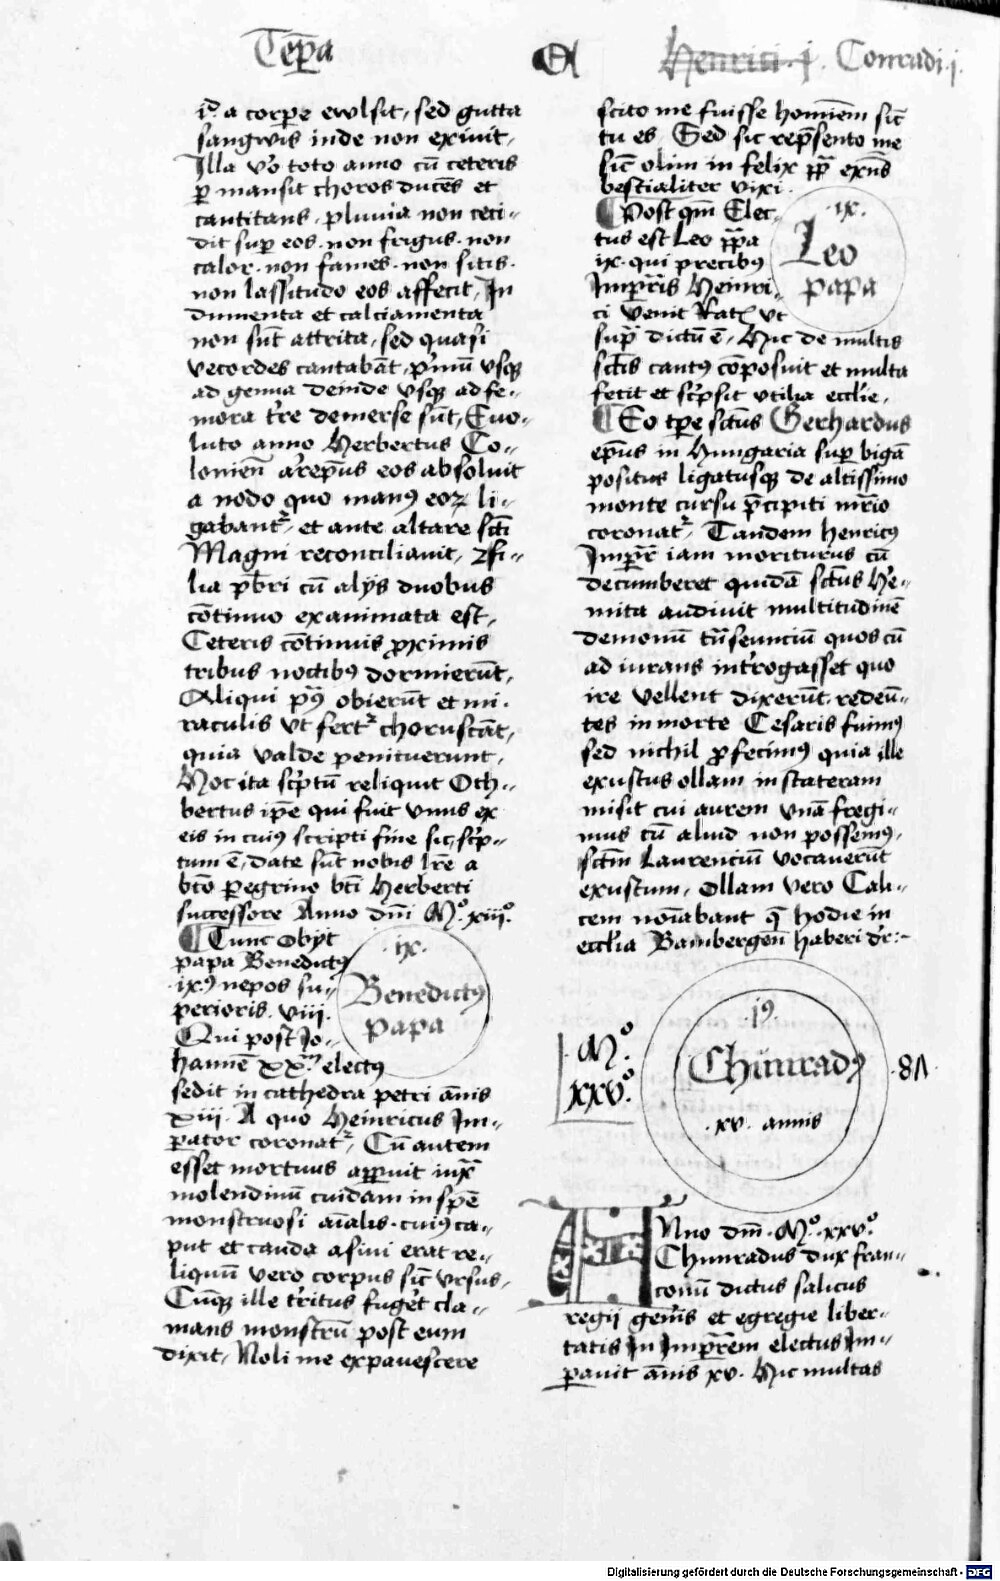 Tēpa Et Henrici .j. Conradi .j.
id a corpore ewlsit, sed gutta
sangwis inde non exiuit,
Illa vo toto anno cū ceteris
ꝑ mansit choros ducēs et
cantitans, pluuia non ceci-
dit suꝑ eos . non frigus . non
calor . non fames . non sitis .
non lassitudo eos affecit, In
dumenta et calciamenta
non sūt attrita, sed quasi
vecordes cantabāt, pͥmū vsqꝫ
ad genua deinde vsqꝫ ad fe-
mora tre demerse sūt, Euo-
luto anno Herbertus Co-
lonien̄ arepūs eos absoluit
a nodo quo manꝰ eoꝝ li-
gabantᷣ, et ante altare scti
Magni reconciliauit, ⁊ fi-
lia pbri cū alijs duobus
cōtinuo examimata est,
Ceteris cōtinuis ꝓximis
tribus noctibꝰ dormierūt,
Aliqui pꝰ obierūt et mi-
raculis vt fertᷣ choruscāt,
quia valde penituerunt,
Hoc ita scͥptū reliquit Oth-
bertus ipē qui fuit vnus ex
eis in cuiꝰ scripti fine sic, scͥp-
tum ē, date sūt nobis lrē a
bto peregrino bti Herberti
successore Anno dm̄i Mͦ. xiiiͦ.
Tunc obyt
papa Benedictꝰ
.ixꝰ nepos su-
perioris . viii.
Qui post Jo-
hannē xx.ͫ electꝰ
sedit in cathedra petri ānis
xiii . A quo Heinricus Im-
ꝑator coronatᷣ, Cū autem
esset mortuus apparuit iuxᷓ
molendinū cuidam in spē
monstruosi aīalis . cuiꝰ ca-
put et cauda asini erat re-
liquū vero corpus sic̄ vrsus,
Cūqꝫ ille tritus fuget cla-
mans monstrū post eum
dixit, Noli me expauescere
.ix.
Benedictꝰ
papa
scito me fuisse homīem sic̄
tu es Sed sic rep̄sento me
sic̄ olim in felix pp̄ exn̄s
bestialiter vixi .
Post qm̄ Elec-
tus est Leo pp̄a
ix . qui precibꝰ
Impr̄is Heinri-
ci venit Ratꝫ vt
sup̄ dictū ē, Hic de multis
sctis cantꝰ cōposuit et multa
fecit et scͥpsit vtilia ecclie,
Eo tp̄e sctus Gerhardus
ep̄us in Hungaria suꝑ bigā
positus ligatusqꝫ de altissimo
monte cursu p̄cipiti mr̄io
coronatᷣ, Tandem henricꝰ
Impr̄ iam moriturus cū
decumberet quidā sctus He-
mita audiuit multitudinē
demonū trāseunciū quos cū
ad iurans introgasset quo
ire vellent dixerūt . redeū-
tes in morte Cesaris fuimꝰ
sed nichil ꝓfecimꝰ quia ille
exustus ollam in stateram
misit cui aurem vnā fregi-
mus cū aliud non possemꝰ,
sctm̄ Laurenciū vocauerūt
exustum, Ollam vero Cali-
cem noīabant q̄ hodie in
ecclia Bambergen̄ haberi dr̄:-
.ix.
Leo
papa
Mͦ.
xxvͦ.
19.
Chūnradꝰ
.xv. annis
.8Λ
Anno dm̄ . Mͦ. xxvͦ.
Chunradus dux fran-
conū dictus salicus
regij gen̄is et egregie liber-
tatis In Impr̄em electus Im-
ꝑauit ānis xv. Hic multas
Digitalisierung gefördert durch die Deutsche Forschungsgemeinschaft - DFG